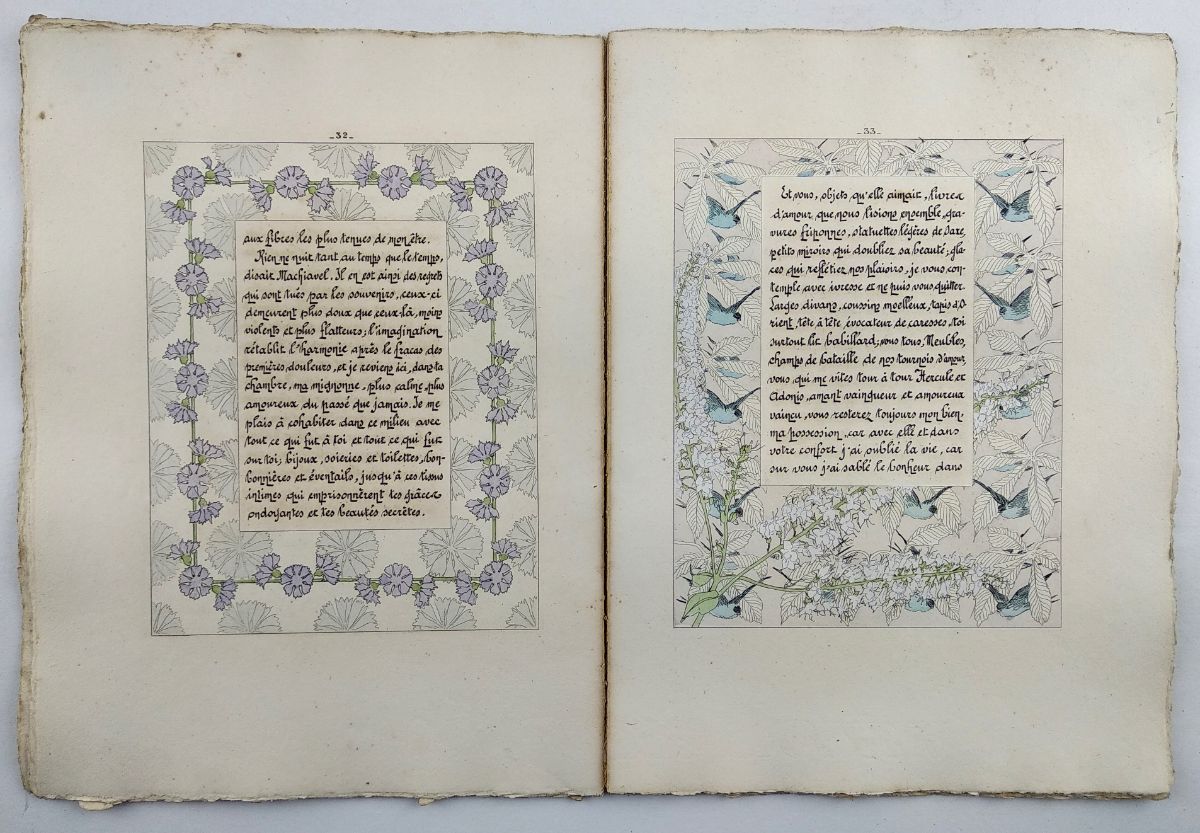 _32_
aux fibres les plus tenues de mon être.
Rien ne nuit tant au temps que le temps,
disait Machiavel. Il en est ainsi des regrets
qui sont tués par les souvenirs, ceux-ci
demeurent plus doux que ceux-là, moins
violents et plus flatteurs; l'imagination
rétablit l'harmonie après le fracas des
premières douleurs, et je reviens ici, dans ta
chambre, ma mignonne, plus calme, plus
amoureux du passé que jamais. Je me
plais à cohabiter dans ce milieu avec
tout ce qui fut à toi et tout ce qui fut
sur toi, bijoux, soieries et toilettes, bon-
bonnières et éventails, jusqu'à ces tissus
intimes qui emprisonnèrent tes grâces
ondoyantes et tes beautés secrètes.
_33_
Et vous, objets qu'elle aimait, livres
d'amour que nous lisions ensemble, gra-
vures friponnes, statuettes légères de Saxe,
petits miroirs qui doubliez sa beauté, gla-
ces qui reflétiez nos plaisirs, je vous con-
temple avec ivresse et ne puis vous quitter.
Larges divans, coussins moelleux, tapis d'O-
rient, tête à tête évocateur de caresses, toi
surtout lit babillard; vous tous, Meubles,
champs de bataille de nos tournois d'amour
vous qui me vîtes tour à tour Hercule et
Adonis, amant vainqueur et amoureux
vaincu, vous resterez toujours mon bien,
ma possession, car avec elle et dans
votre confort j'ai oublié la vie, car
sur vous j'ai sablé le bonheur dans